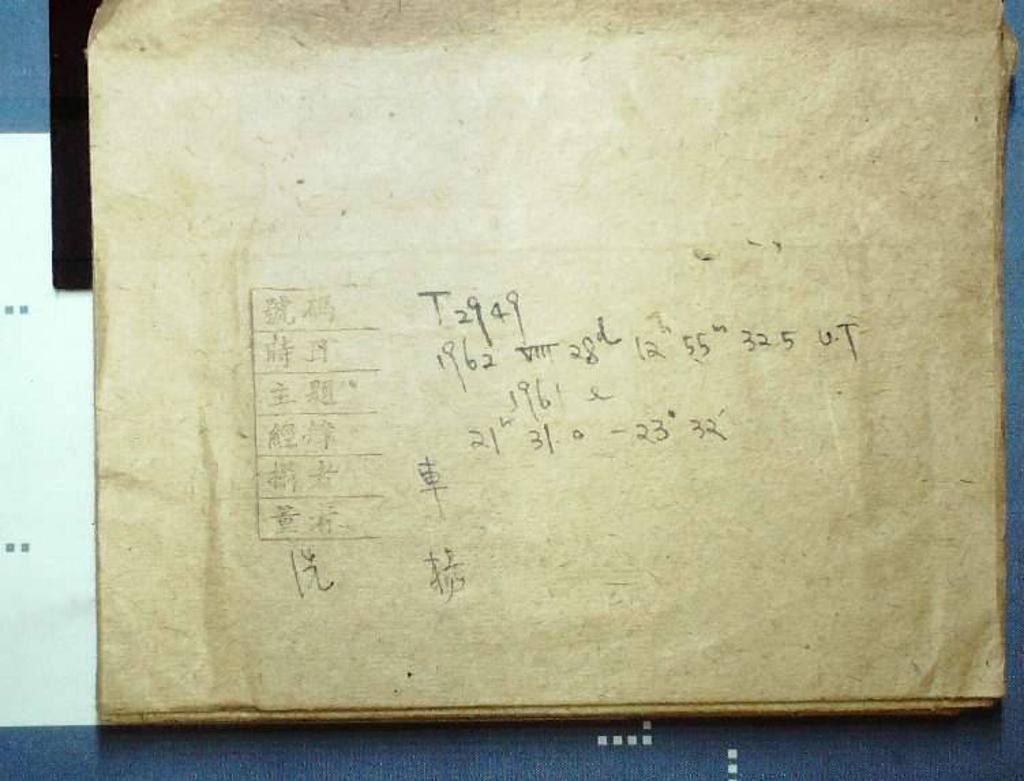 號碼 T 2949
時刻 1962 VIII 28d 12h 55m 32s U.T
主題 1961 e
經緯 21h 31.0 -23° 32'
攝者 車
量者
洗 楊